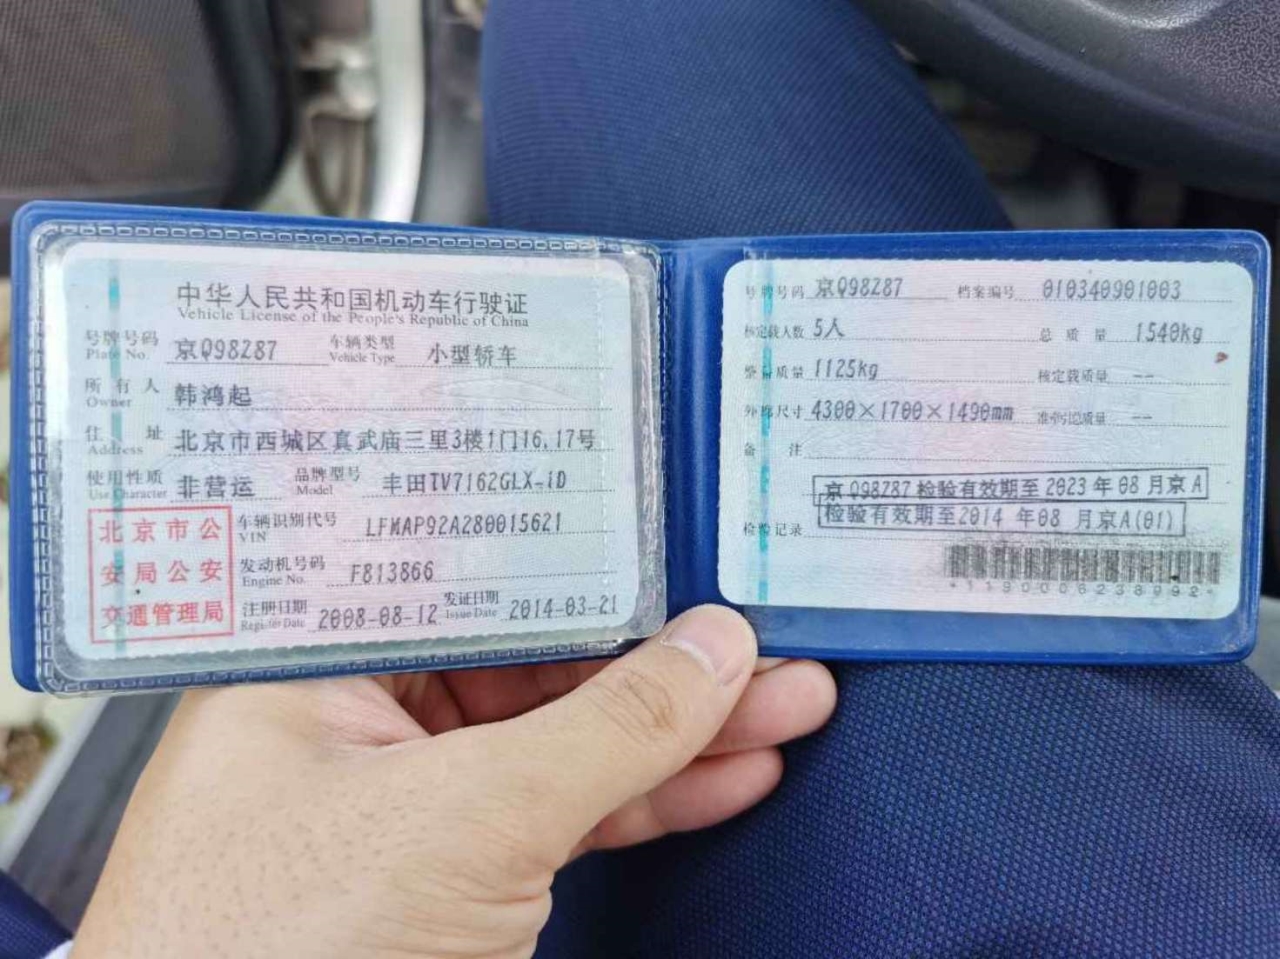 中华人民共和国机动车行驶证
Vehicle License of the People's Republic of China
号牌号码 京Q98Z87 车辆类型 小型轿车
Plate No. Vehicle Type
所有人 韩鸿起
Owner
住址 北京市西城区真武庙三里3楼1门16,17号
Address
使用性质 非营运 品牌型号 丰田TV7162GLX-iD
Use Character Model
北京市公
安局公安
交通管理局
车辆识别代号 LFMAP92A280015621
VIN
发动机号码 F813866
Engine No.
注册日期 2008-08-12 发证日期 2014-03-21
Register Date Issue Date
号牌号码 京Q98Z87 档案编号 010340901003
核定载人数 5人 总质量 1540kg
整备质量 1125kg 核定载质量 --
外廓尺寸 4300×1700×1490mm 准牵引总质量 --
备注
京Q98Z87 检验有效期至2023年08月京A
检验有效期至2014年08月京A(01)
检验记录
*1190006238992*